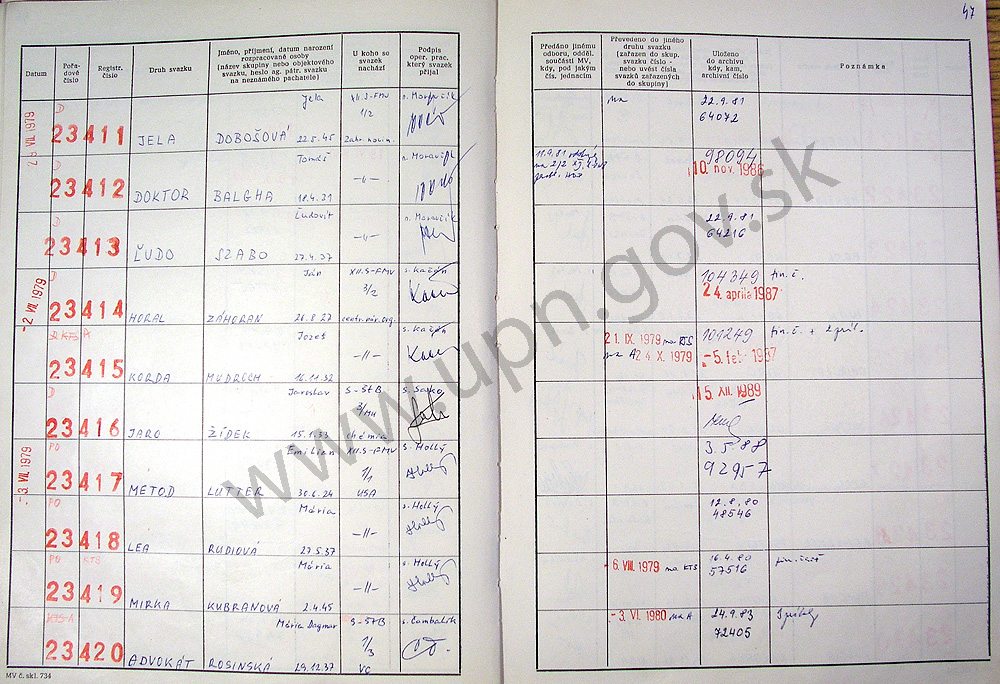 47
Datum
Pořa-
dové
číslo
Registr.
číslo
Druh svazku
Jméno, příjmení, datum narození
rozpracované osoby
(název skupiny nebo objektového
svazku, heslo ag. pátr. svazku
na neznámého pachatele)
U koho se
svazek
nachází
Podpis
oper. prac.
který svazek
přijal
Předáno jinému
odboru, odděl.
součásti MV,
kdy, pod jakým
čís. jednacím
Převedeno do jiného
druhu svazku
(zařazen do skup.
svazku číslo -
nebo uvést čísla
svazků zařazených
do skupiny)
Uloženo
do archivu
kdy, kam,
archivní číslo
Poznámka
VII. 1979
D
23411
JELA
Jela
DOBOŠOVÁ 22.8.45
XII.S-FMV
1/2
22.9.81
64072
D
23412
DOKTOR
Tomáš
BALGHA 18.4.31
-"-
98094
10. nov. 1986
D
23413
ĽUDO
Ľudovít
SZABO 27.4.37
-"-
22.9.81
64216
-2. VII. 1979
D
23414
HORAL
Ján
ZÁHORAN 26.8.27
XII.S-FMV
3/2
104349
24. apríla 1987
fin. č.
23415
KORDA
Jozef
MUDROCH 16.11.32
-"-
21. IX. 1979 na KTS
na A 24. X. 1979
109249
-5. feb. 1987
D
23416
JARO
Jaroslav
ŽÍDEK 15.1.33
S-ŠTB
chémia
15. XII. 1989
-3. VII. 1979
PO
23417
METOD
Emilian
LUTTER 30.6.24
XII.S-FMV
1/1
USA
s. Hollý
3.5.88
92957
PO
23418
LEA
Mária
RUDIOVÁ 27.5.37
-"-
s. Hollý
12.8.80
48546
PO KTS
23419
MIRKA
Mária
KUBRANOVÁ 2.4.45
-"-
s. Hollý
-6. VIII. 1979 na KTS
16.4.80
57516
23420
ADVOKÁT
Mária Dagmar
ROSINSKÁ 29.12.37
S-ŠTB
1/3
VC
-3. VI. 1980 na A
24.9.83
72405
MV č. skl. 734
www.upn.gov.sk